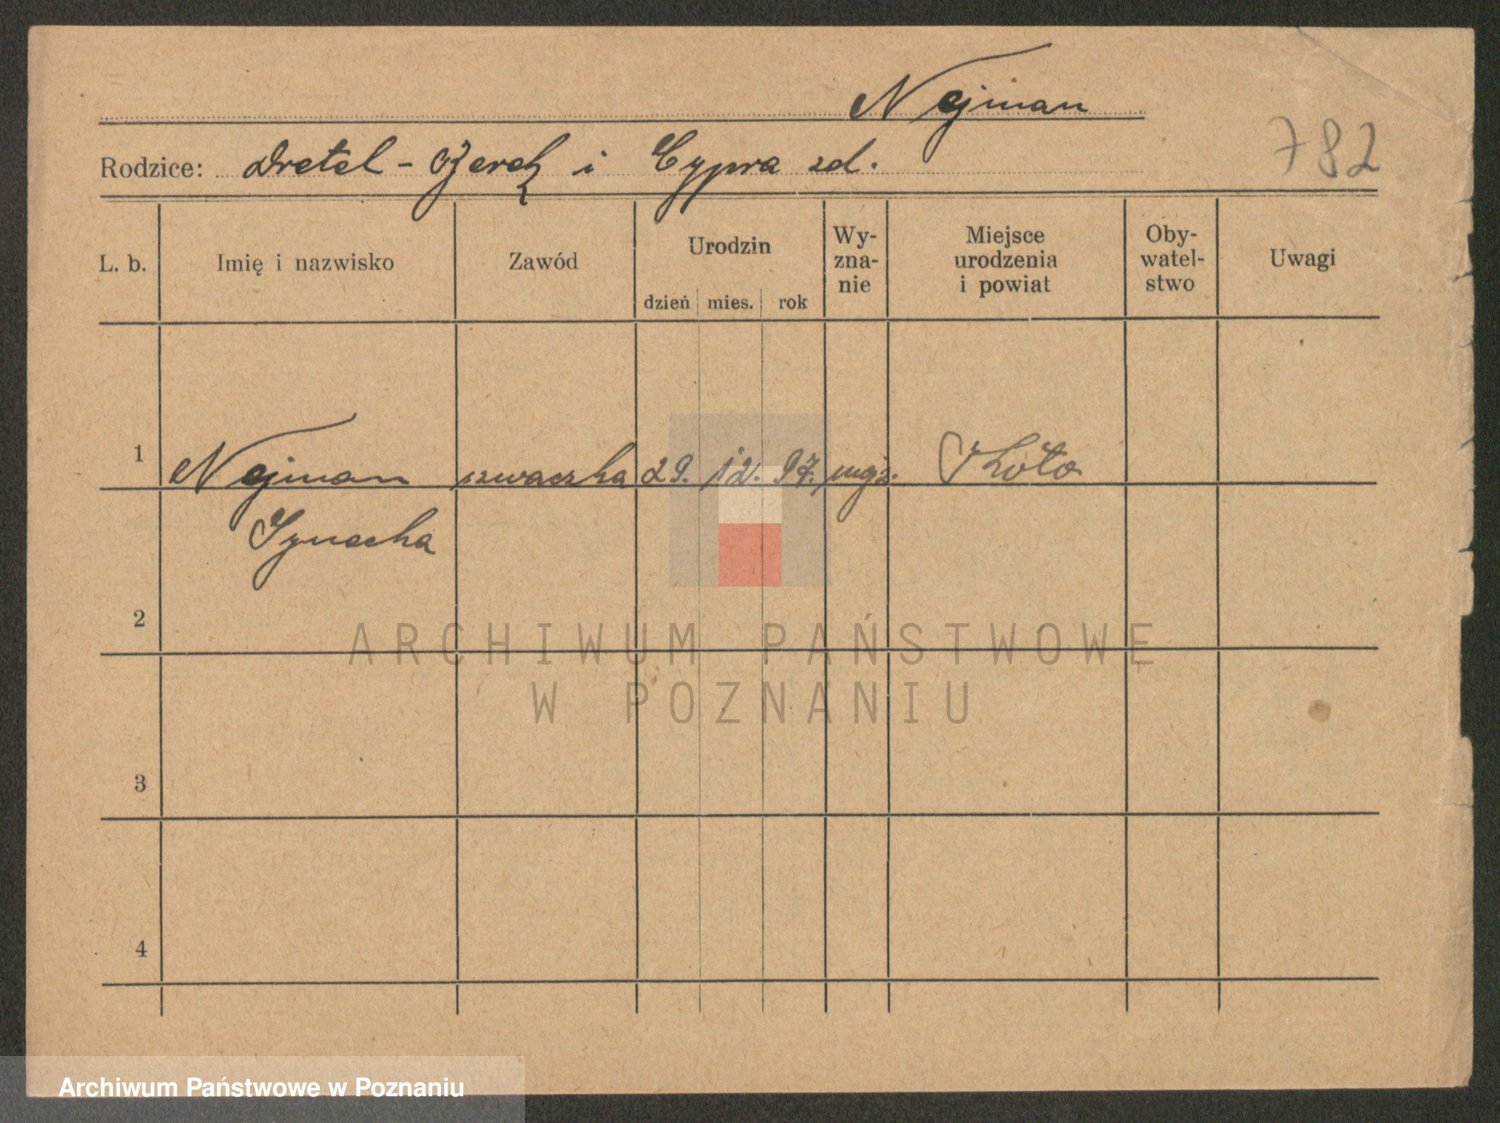 Nejman
782
Rodzice: Dretel - i Cypra zd.
L. b. Imię i nazwisko Zawód Urodzin dzień mies. rok Wy-zna-nie Miejsce urodzenia i powiat Oby-watel-stwo Uwagi
1 Nejman szwaczka 29. 12. 97. mojż. Koło
2
3
4
ARCHIWUM PAŃSTWOWE
W POZNANIU
Archiwum Państwowe w Poznaniu